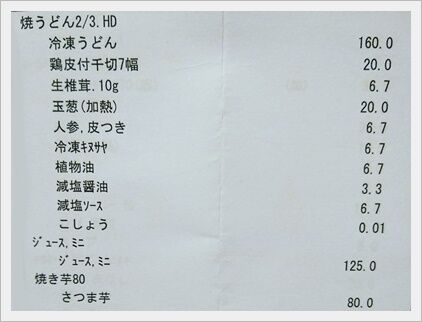 焼うどん2/3.HD
冷凍うどん 160.0
鶏皮付千切7幅 20.0
生椎茸,10g 6.7
玉葱(加熱) 20.0
人参,皮つき 6.7
冷凍ｷﾇｻﾔ 6.7
植物油 6.7
減塩醤油 3.3
減塩ｿｰｽ 6.7
こしょう 0.01
ｼﾞｭｰｽ,ﾐﾆ
ｼﾞｭｰｽ,ﾐﾆ 125.0
焼き芋80
さつま芋 80.0